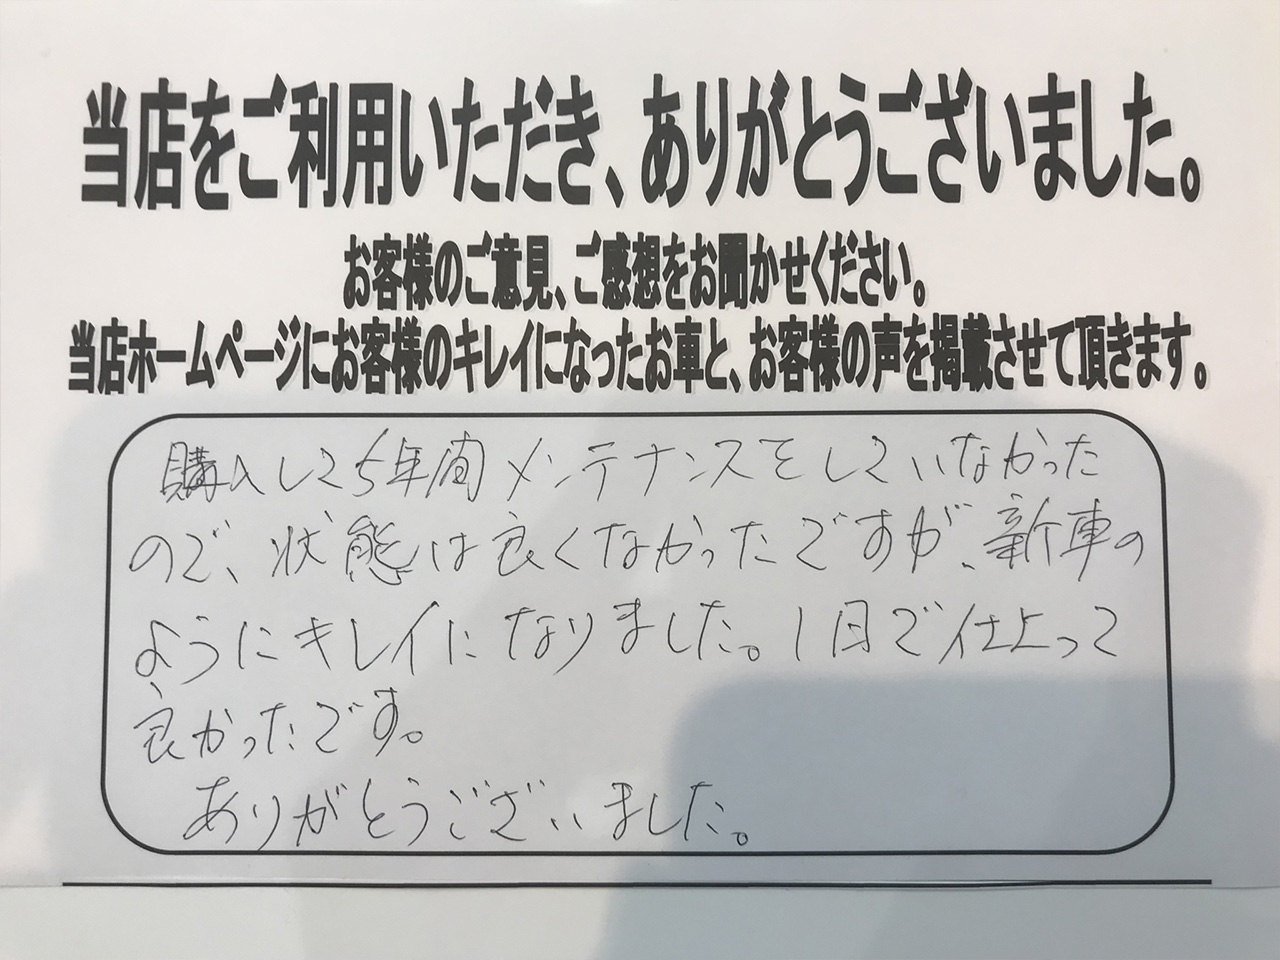 当店をご利用いただき、ありがとうございました。
お客様のご意見、ご感想をお聞かせください。
当店ホームページにお客様のキレイになったお車と、お客様の声を掲載させて頂きます。
購入して5年間メンテナンスをしていなかった
ので、状態は良くなかったですが、新車の
ようにキレイになりました。1日で仕上って
良かったです。
ありがとうございました。